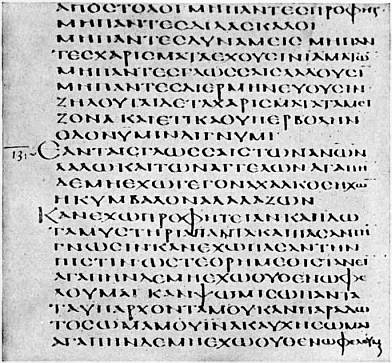 ΑΠΟCΤΟΛΟΙ ΜΗΠΑΝΤΕCΠΡΟΦΗΤ
ΜΗΠΑΝΤΕCΔΙΔΑCΚΑΛΟΙ
ΜΗΠΑΝΤΕCΔΥΝΑΜΕΙC ΜΗΠΑΝ
ΤΕCΧΑΡΙCΜΑΤΑΕΧΟΥCΙΝΙΑΜΑΤΩ
ΜΗΠΑΝΤΕCΓΛΩCCΑΙCΛΑΛΟΥCΙ
ΜΗΠΑΝΤΕCΔΙΕΡΜΗΝΕΥΟΥCΙΝ
ΖΗΛΟΥΤΑΙΔΕΤΑΧΑΡΙCΜΑΤΑΤΑΜΕΙ
ΖΟΝΑ ΚΑΙΕΤΙΚΑΘΥΠΕΡΒΟΛΗΝ
ΟΔΟΝΥΜΙΝΔΙΓΝΥΜΙ
13:1 ΕΑΝΤΑΙCΓΛΩCCΑΙCΤΩΝΑΝΩΝ
ΛΑΛΩ ΚΑΙΤΩΝΑΓΓΕΛΩΝ ΑΓΑΠΗ
ΔΕΜΗΕΧΩ ΓΕΓΟΝΑΧΑΛΚΟCΗΧΩ
ΗΚΥΜΒΑΛΟΝΑΛΑΛΑΖΟΝ
ΚΑΝΕΧΩΠΡΟΦΗΤΕΙΑΝ ΚΑΙΙΔΩ
ΤΑΜΥCΤΗΡΙΑΠΑΝΤΑΚΑΙΠΑCΑΝΤΗ
ΓΝΩCΙΝ ΚΑΝΕΧΩΠΑCΑΝΤΗΝ
ΠΙCΤΙΝΩCΤΕΟΡΗΜΕΘΙCΤΑΝΕΙ
ΑΓΑΠΗΝΔΕΜΗΕΧΩΟΥΘΕΝΩΦΕ
ΛΟΥΜΑΙ ΚΑΝΨΩΜΙCΩΠΑΝΤΑ
ΤΑΥΠΑΡΧΟΝΤΑΜΟΥΚΑΝΠΑΡΑΔΩ
ΤΟCΩΜΑΜΟΥΪΝΑΚΑΥΧΗCΩΜΑΙ
ΑΓΑΠΗΝΔΕΜΗΕΧΩΟΥΘΕΝΩΦΕΛΟΥΜ